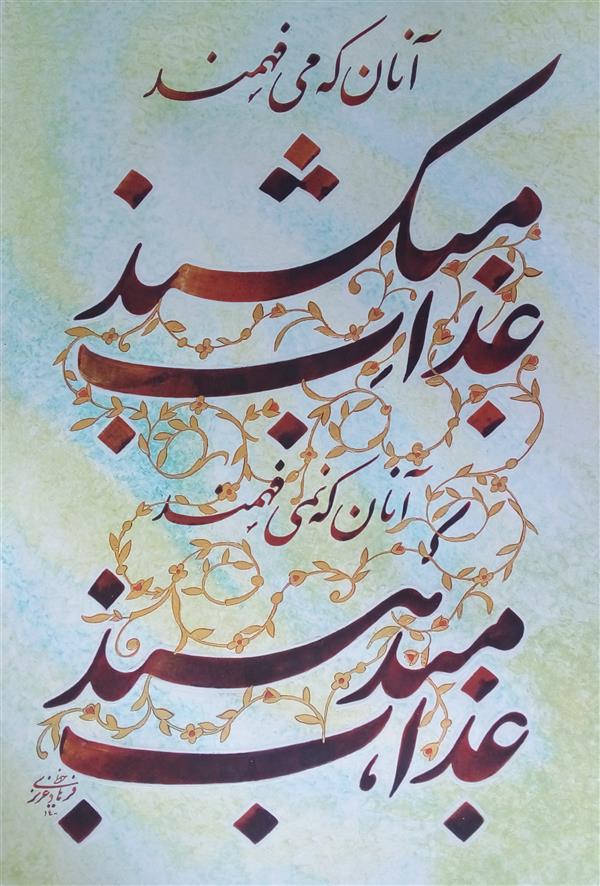 آنان که می فهمند
عذاب میکشند
آنان که نمی فهمند
عذاب میدهند
فرهاد عزیزی
۱۴۰۰